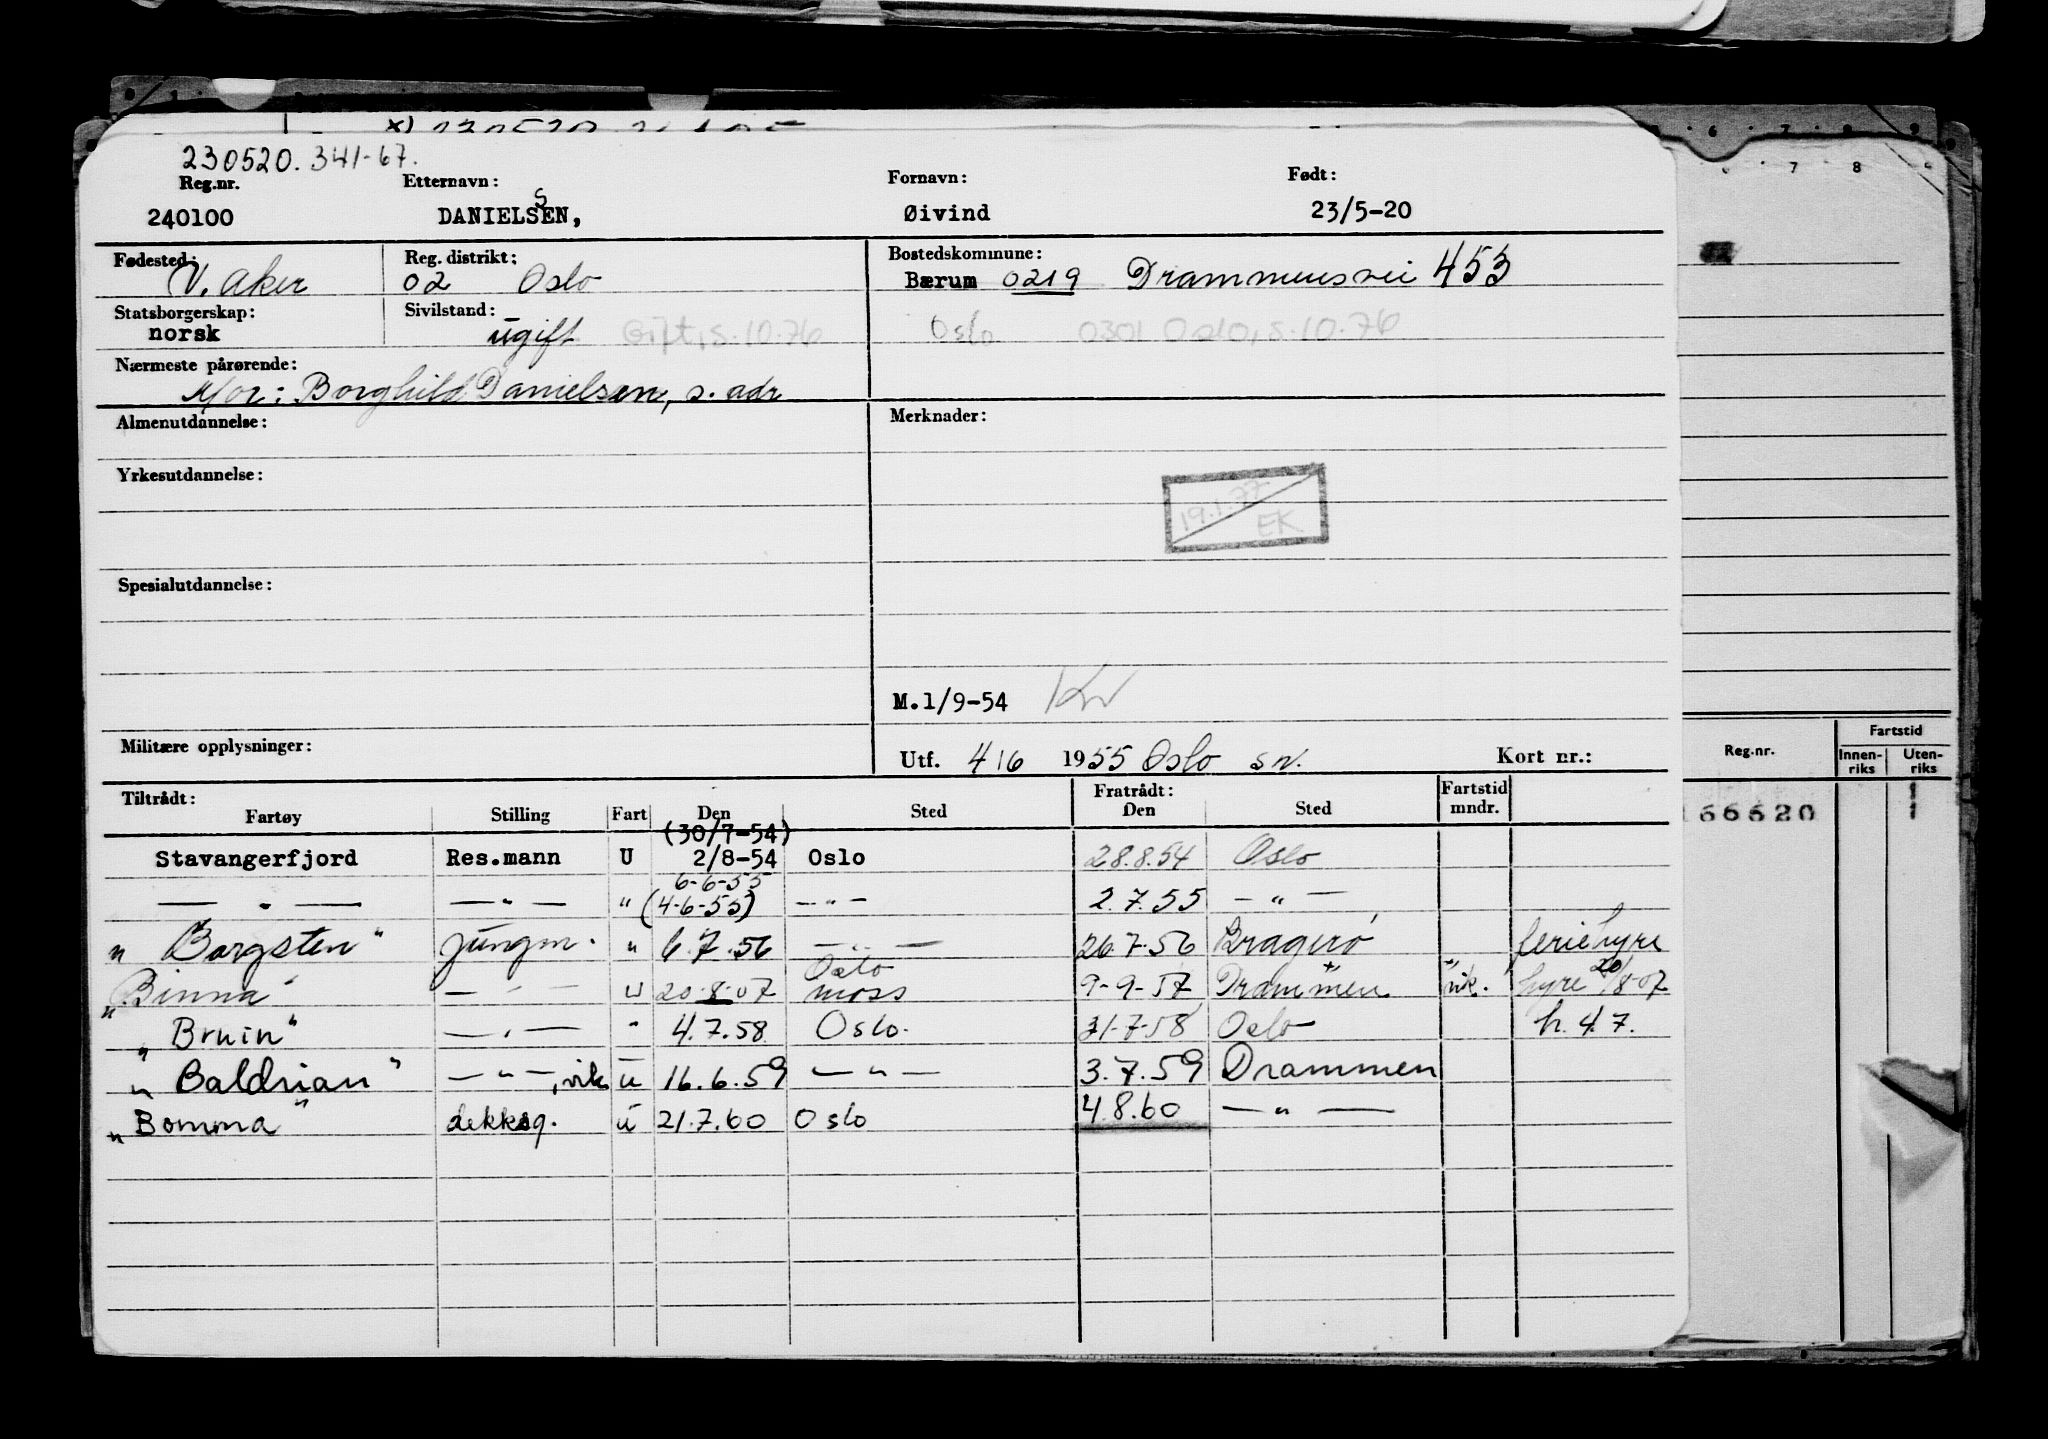 230520.341-67.
Reg.nr. Etternavn: Fornavn: Født:
240100 DANIELSEN, Øivind 23/5-20
S
Fødested: Reg. distrikt: Bostedskommune:
V. Aker 02 Oslo Bærum 0219 Drammensvei 453
Statsborgerskap: Sivilstand:
norsk ugift Gift, s.10.76 Oslo 0301 Oslo, s.10.76
Nærmeste pårørende:
Mor: Borghild Danielsen, s. adr
Almenutdannelse: Merknader:
Yrkesutdannelse:
19.1.77
EK
Spesialutdannelse:
M.1/9-54
Militære opplysninger:
Utf. 4/6 1955 Oslo sn. Kort nr.:
Reg.nr. Fartstid
Innen-riks Uten-riks
Tiltrådt: Fratrådt: Fartstid
Fartøy Stilling Fart Den Sted Den Sted mndr.
(30/7-54)
Stavangerfjord Res.mann U 2/8-54 Oslo 28.8.54 Oslo
6-6-55
— " — — " — " (4-6-55) — " — 2.7.55 — " —
" Borgsten " jungm. " 6.7.56 — " — 26.7.56 Bragerø " feriehyre
Oslo
" Binna " — " — U 20.8.57 Moss 9-9-57 Drammen vik. hyre 20/8-57
" Bruin " — " — " 4.7.58 Oslo. 31-7-58 Oslo h. 4.7.
" Baldrian " — " —, vik u 16.6.59 — " — 3.7.59 Drammen
" Bomma " dekksg. u 21.7.60 Oslo 4.8.60 — " —
166620 1
1
6 7 8 9
7 8 9